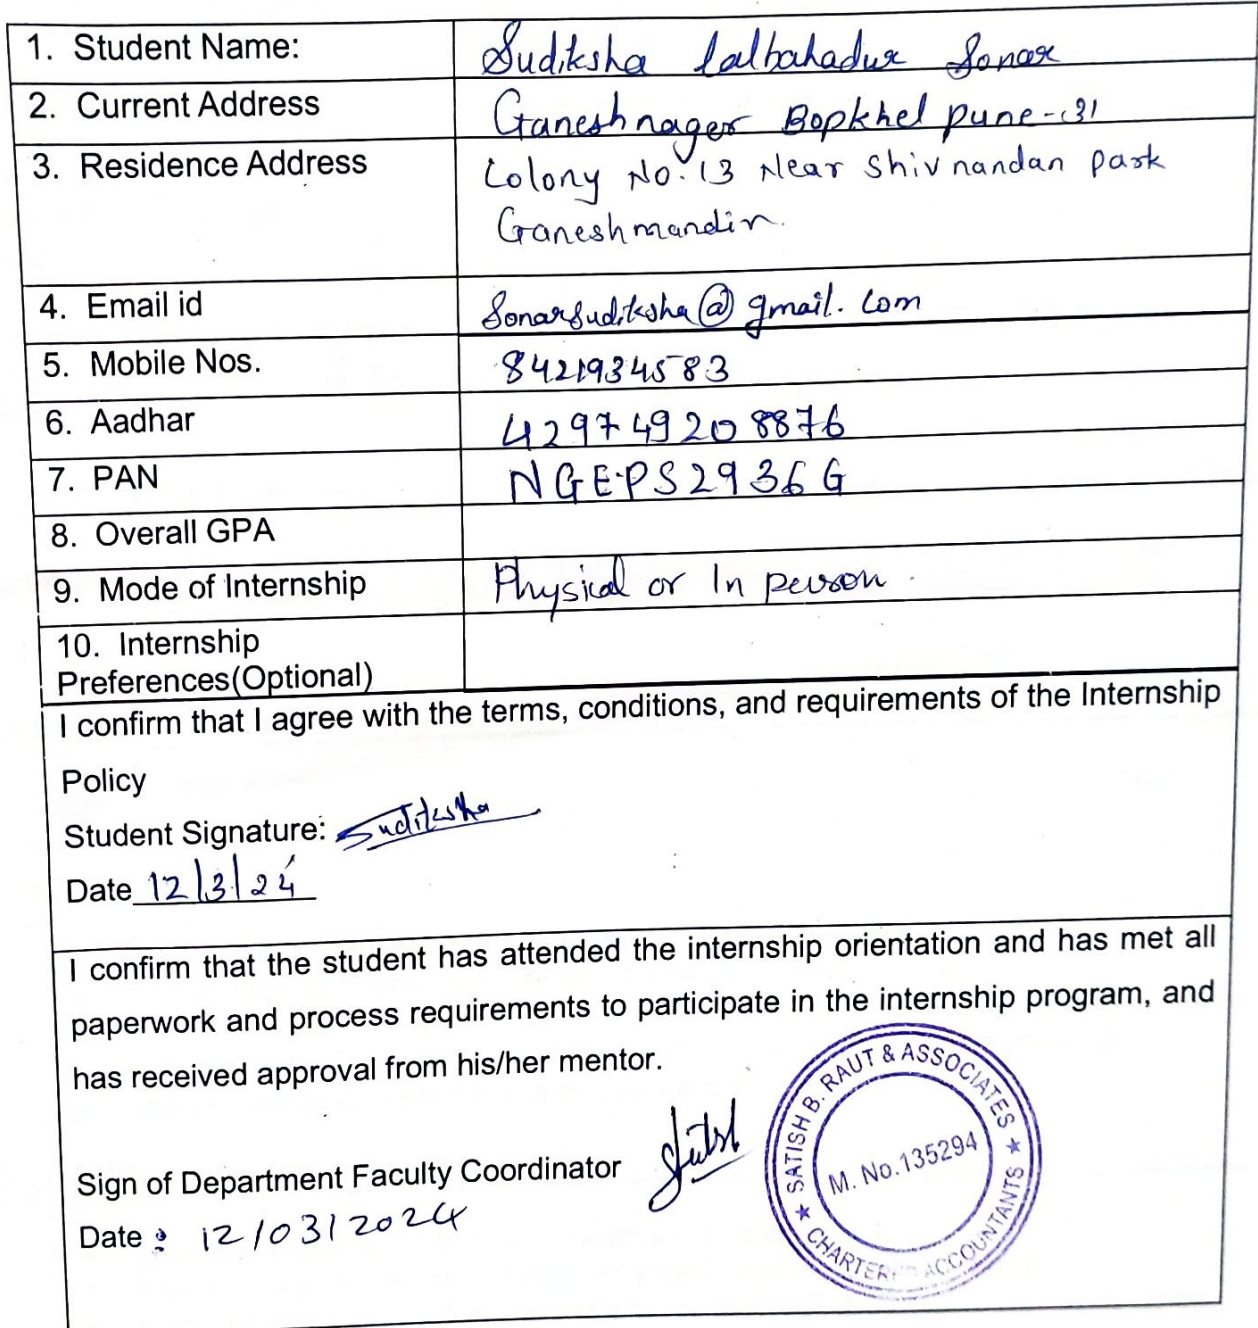 1. Student Name: Sudiksha lalbahadur Sonar
2. Current Address Ganeshnager Bopkhel pune-31
3. Residence Address Colony No.13 Near Shivnandan park
Ganeshmandir.
4. Email id Sonarsudiksha@gmail.com
5. Mobile Nos. 8421934583
6. Aadhar 429749208876
7. PAN NGEPS2936G
8. Overall GPA
9. Mode of Internship Physical or In person.
10. Internship
Preferences(Optional)
I confirm that I agree with the terms, conditions, and requirements of the Internship
Policy
Student Signature: Sudiksha
Date 12/3/24
I confirm that the student has attended the internship orientation and has met all
paperwork and process requirements to participate in the internship program, and
has received approval from his/her mentor.
Sign of Department Faculty Coordinator
Date : 12/03/2024
★ SATISH B. RAUT & ASSOCIATES ★
M. No.135294
CHARTERED ACCOUNTANTS